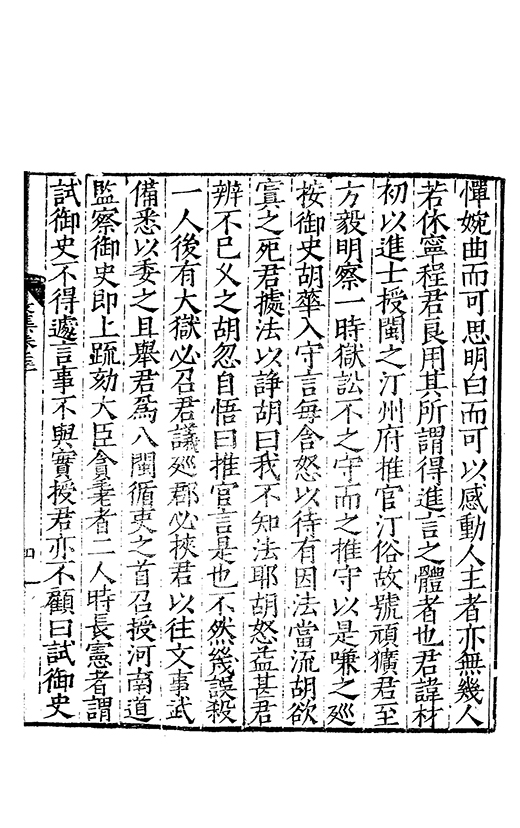 憚婉曲而可思明白而可以感動人主者亦無幾人
若休寧程君良用其所謂得進言之體者也君諱材
初以進士授閩之汀州府推官汀俗故號頑獷君至
方毅明察一時獄訟不之守而之推守以是嗛之廵
按御史胡華入守言毎含怒以待有因法當流胡欲
寘之死君據法以諍胡曰我不知法耶胡怒益甚君
辨不已乂之胡忽自悟曰推官言是也不然幾誤殺
一人後有大獄必召君議廵郡必挾君以往文事武
備悉以委之且舉君爲八閩循吏之首召授河南道
監察御史即上䟽劾大臣貪耄者二人時長憲者謂
試御史不得遽言事不與實授君亦不顧曰試御史
四